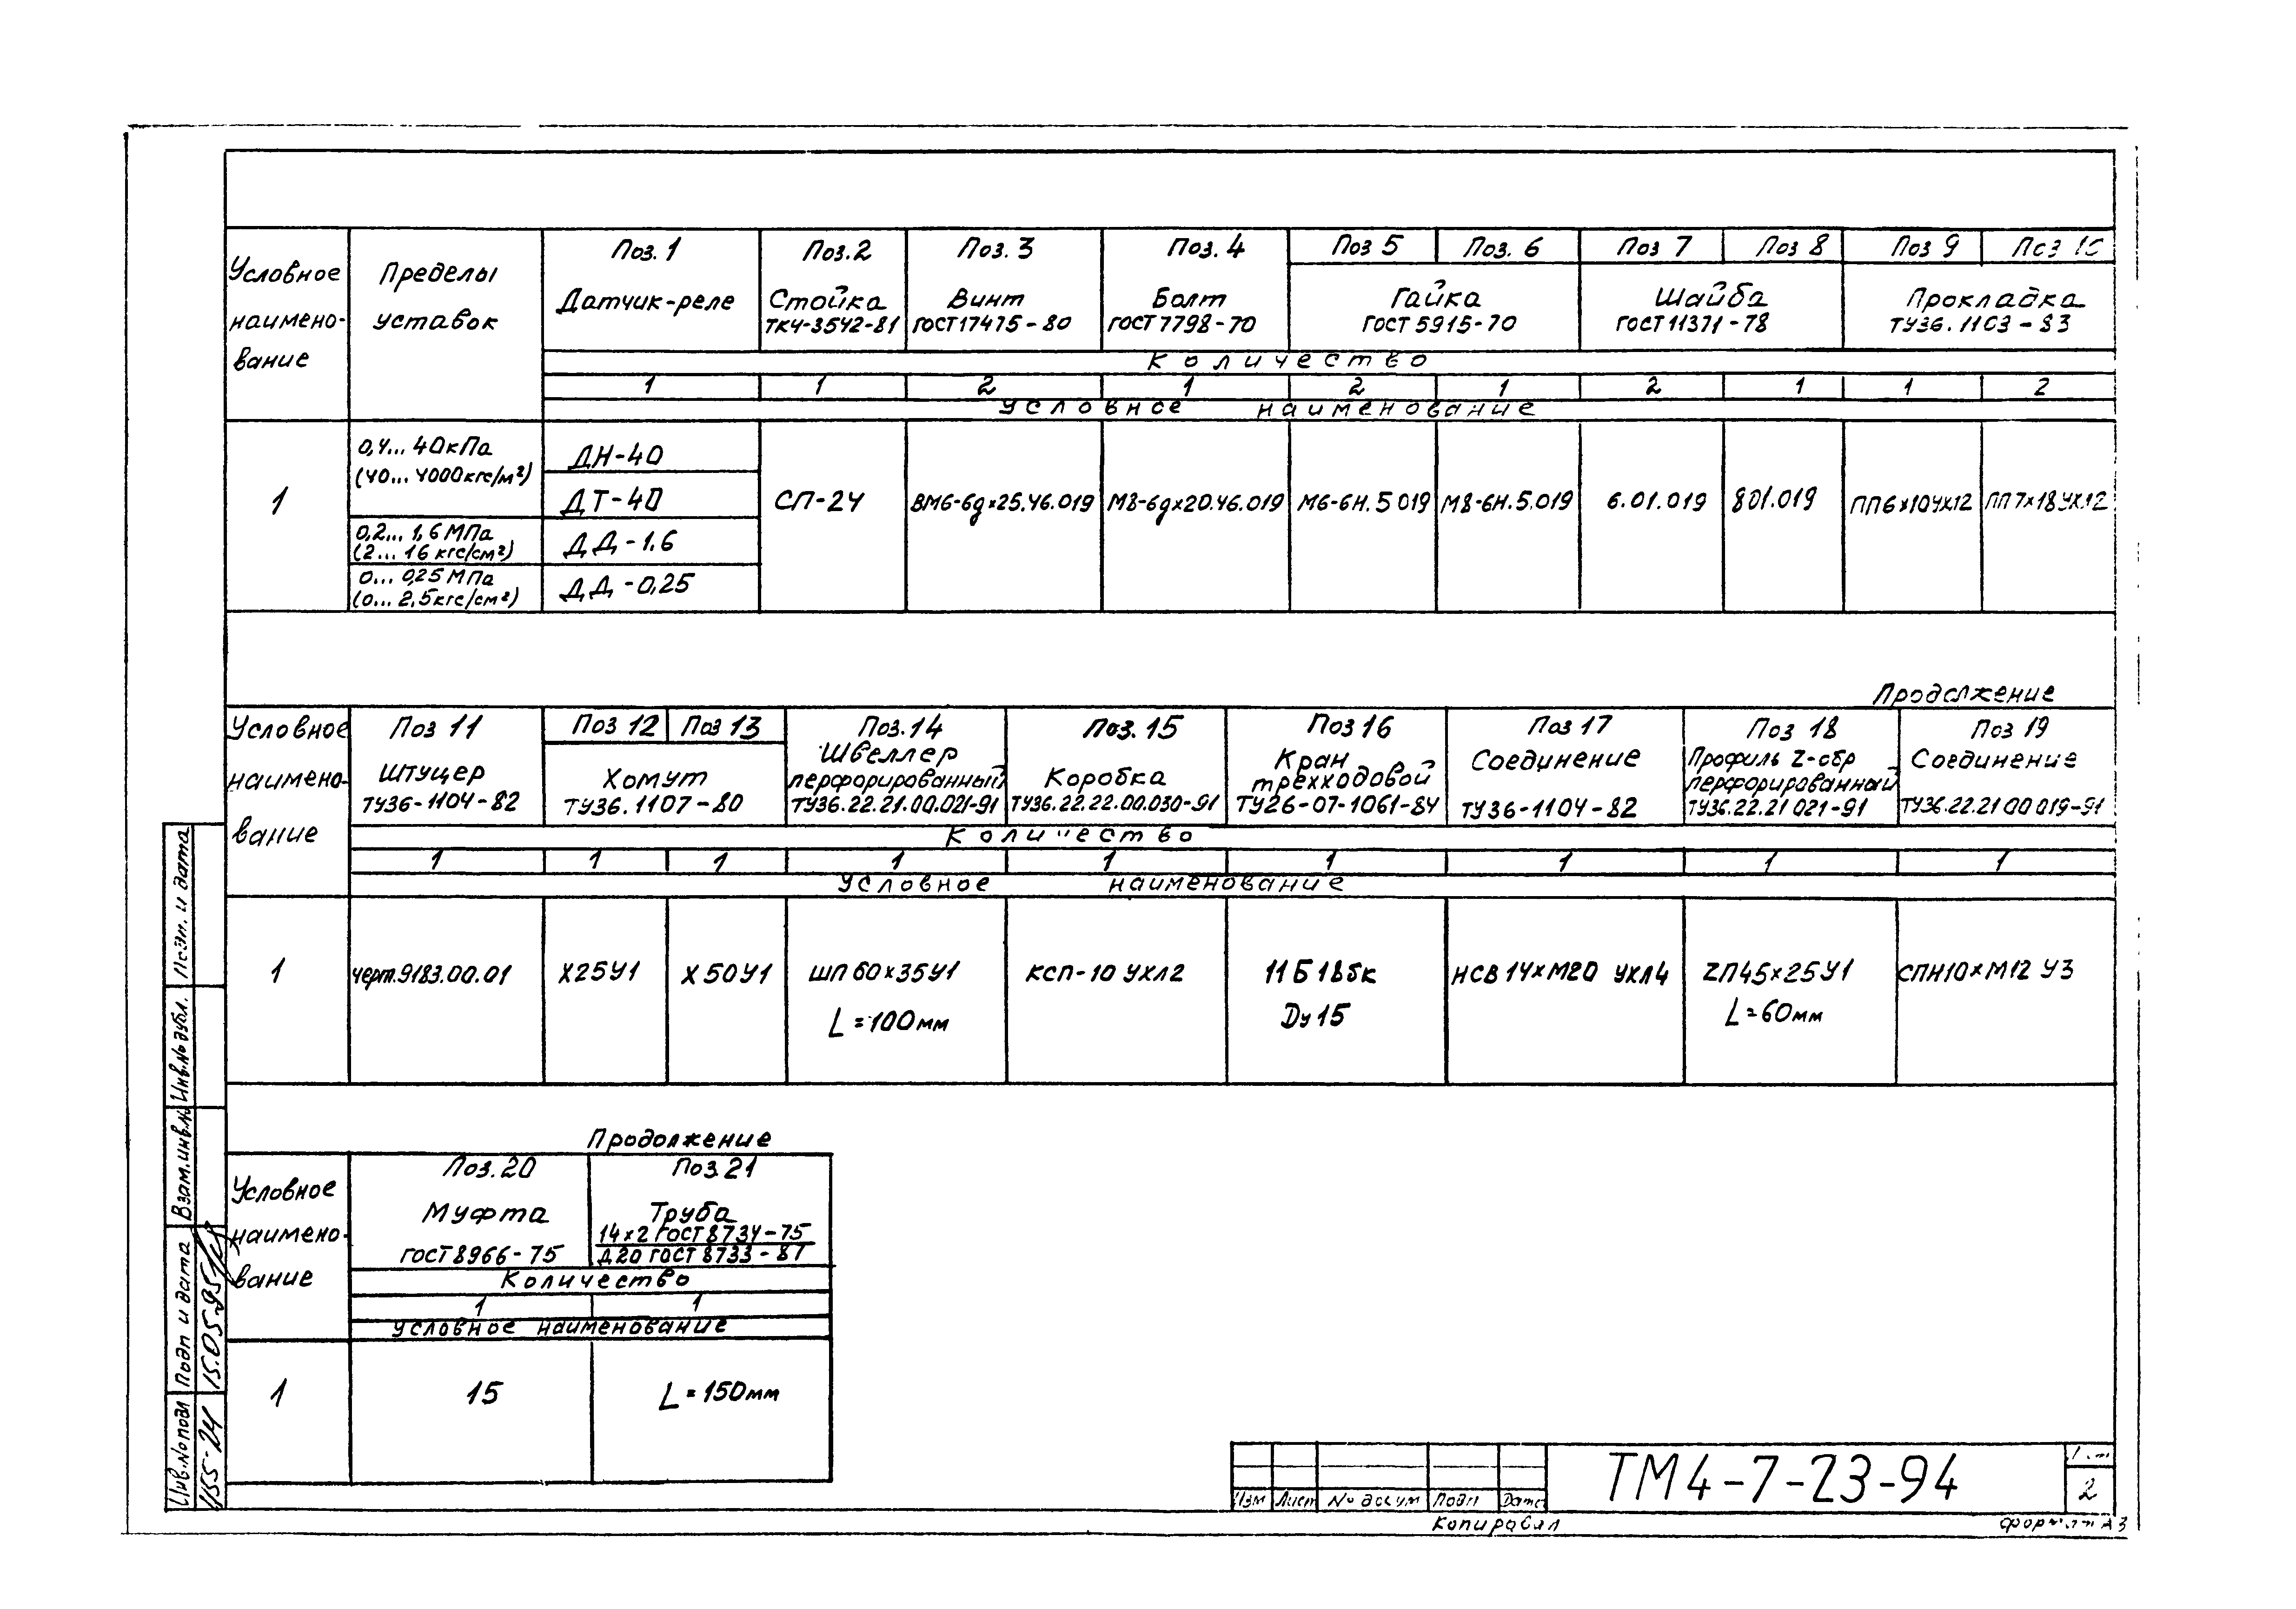 Условное наимено-вание
Пределы уставок
Поз. 1 Поз.2 Поз. 3 Поз. 4 Поз 5 Поз. 6 Поз 7 Поз 8 Поз 9 Поз 10
Датчик-реле
Стойка ТК4-3542-81
Винт ГОСТ17475-80
Болт ГОСТ7798-70
Гайка ГОСТ5915-70
Шайба ГОСТ11371-78
Прокладка ТУ36.1103-83
Количество
1 1 2 1 2 1 2 1 1 2
Условное наименование
1
0,4... 40кПа
(40... 4000кгс/м²)
ДН-40
ДТ-40
0,2... 1,6 МПа
(2... 16 кгс/см²)
ДД-1.6
0... 0,25 МПа
(0... 2,5кгс/см²)
ДД-0,25
СП-24 ВМ6-6gх25.46.019 М8-6gх20.46.019 М6-6Н.5 019 М8-6Н.5.019 6.01.019 801.019 ПП6х10УХ12 ПП7х18УХ12
Продолжение
Условное наимено-вание
Поз 11 Поз 12 Поз 13 Поз.14 Поз. 15 Поз 16 Поз 17 Поз 18 Поз 19
Штуцер ТУ36-1104-82
Хомут ТУ36.1107-80
Швеллер перфорированный ТУ36.22.21.00.021-91
Коробка ТУ36.22.22.00.030-91
Кран трехходовой ТУ26-07-1061-84
Соединение ТУ36-1104-82
Профиль Z-обр перфорированный ТУ36.22.21 021-91
Соединение ТУ36.22.21 00 019-91
Количество
1 1 1 1 1 1 1 1 1
Условное наименование
1 черт.9183.00.01 Х25У1 Х50У1 ШП 60х35У1 КСП-10 УХЛ2 11Б18бк НСВ 14хМ20 УХЛ4 ZП45х25У1 СПН10хМ12 У3
L=100мм Dу 15 L=60мм
Продолжение
Условное наимено-вание
Поз.20 Поз.21
Муфта ГОСТ8966-75
Труба
14х2 ГОСТ8734-75
Д20 ГОСТ 8733-87
Количество
1 1
Условное наименование
1 15 L=150мм
Подп. и дата
Инв.№дубл.
Взам.инв.№
Подп и дата 15.05.95
Инв.№подл
Изм Лист № докум Подп Дата
ТМ4-7-23-94
Лист
2
Копировал
формат А3